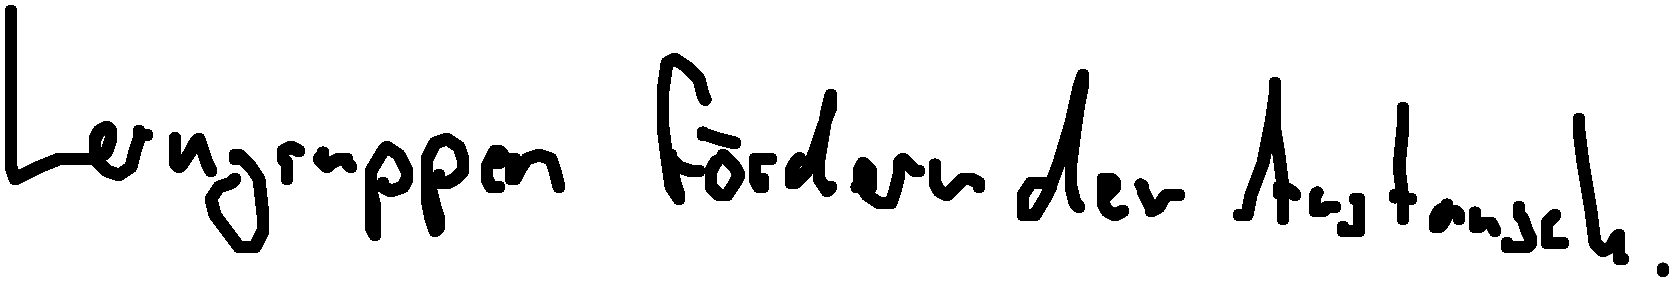 Lerngruppen fördern den Austausch.